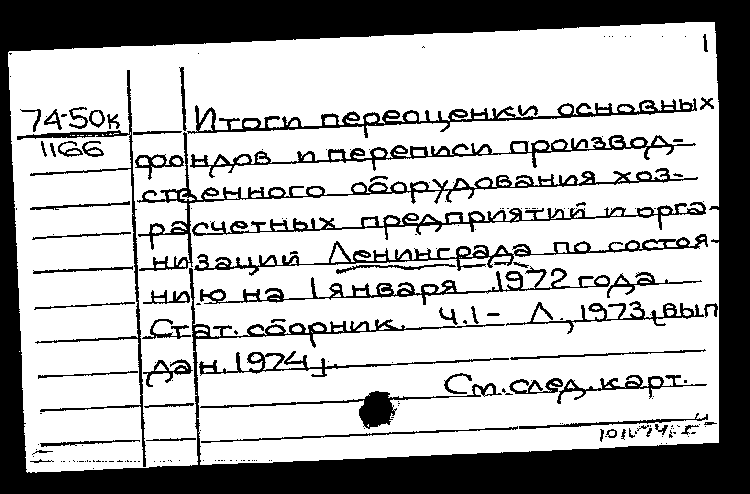 1
74-50к
1166
Итоги переоценки основных
фондов и переписи производ-
ственного оборудования хоз-
расчетных предприятий и орга-
низаций Ленинграда по состоя-
нию на 1 января 1972 года.
Стат. сборник. Ч.1- Л., 1973, [вып
дан. 1974].
См. след. карт.